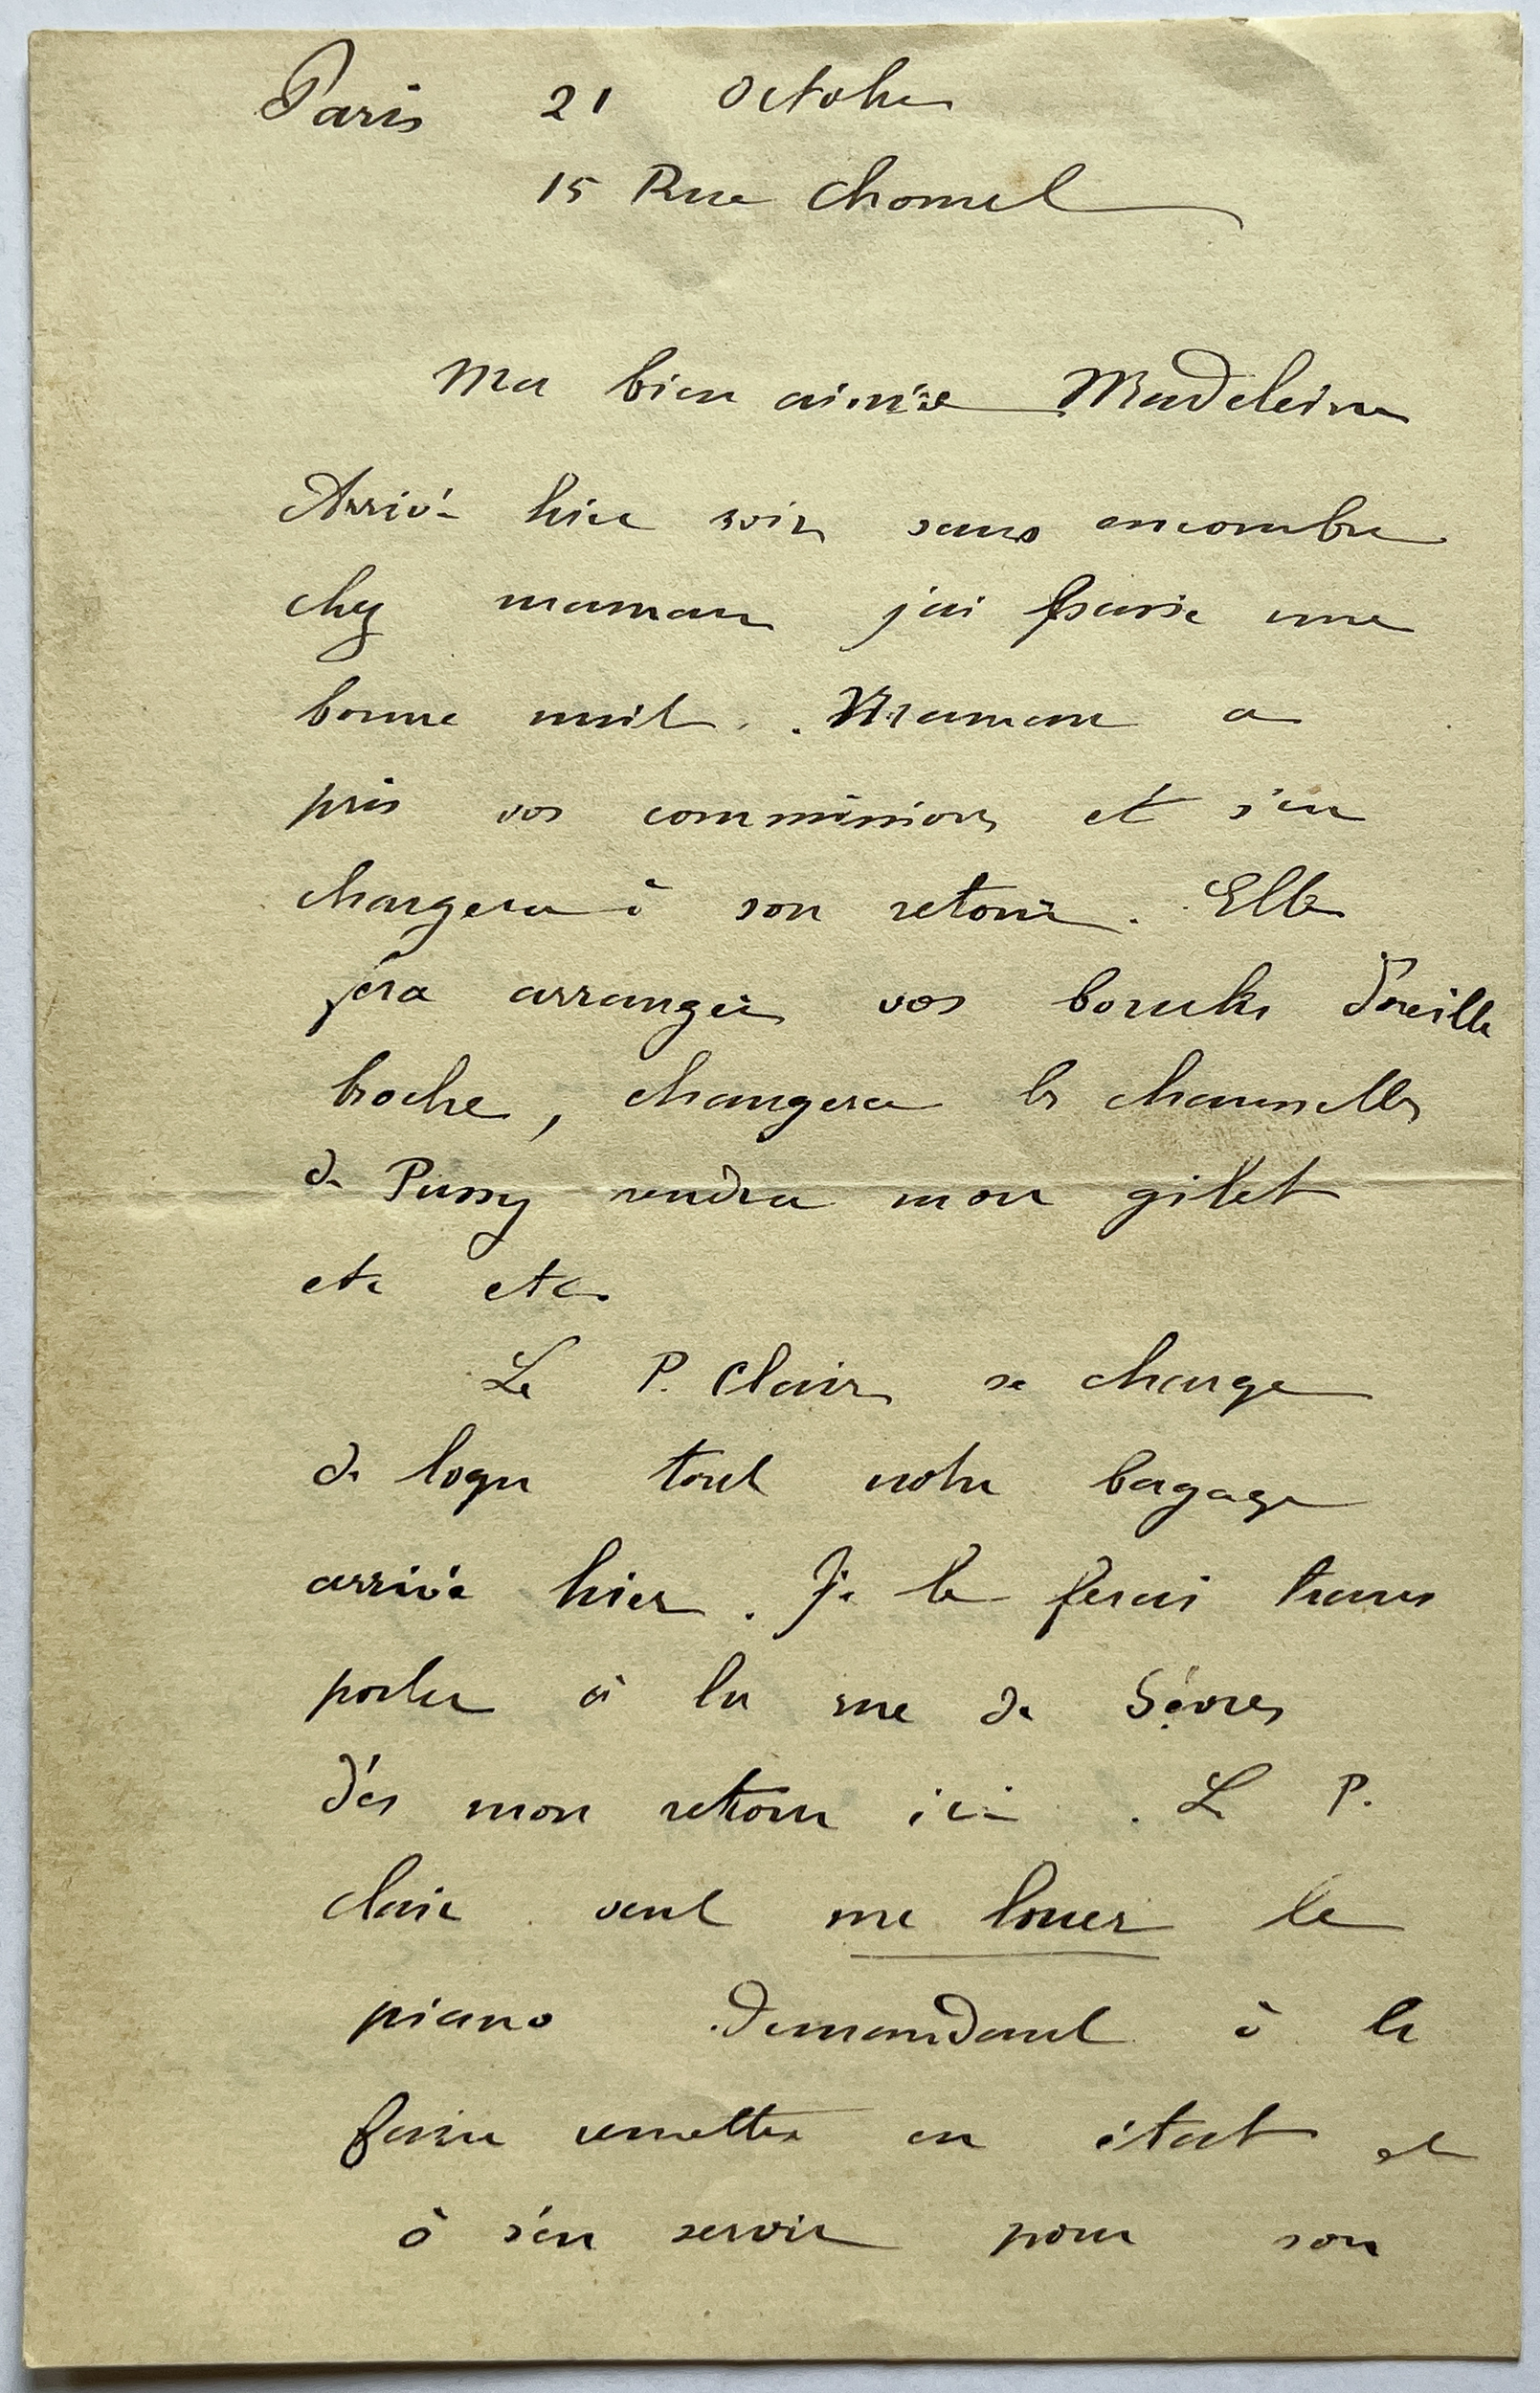 Paris 21 Octobre
15 Rue Chomel
Ma bien aimée Madeleine
Arrivé hier soir sans encombre
chez maman j'ai passé une
bonne nuit. Maman a
pris vos commissions et s'en
chargera à son retour. Elle
fera arranger vos boucles d'oreille
broche, changera les chaussettes
de Pussy rendra mon gilet
etc etc.
Le P. Clair se charge
de loger tout notre bagage
arrivé hier. Je le ferai trans
porter à la rue de Sèvres
dès mon retour ici. Le P.
Clair veut me louer le
piano demandant à le
faire remettre en état et
à s'en servir pour son